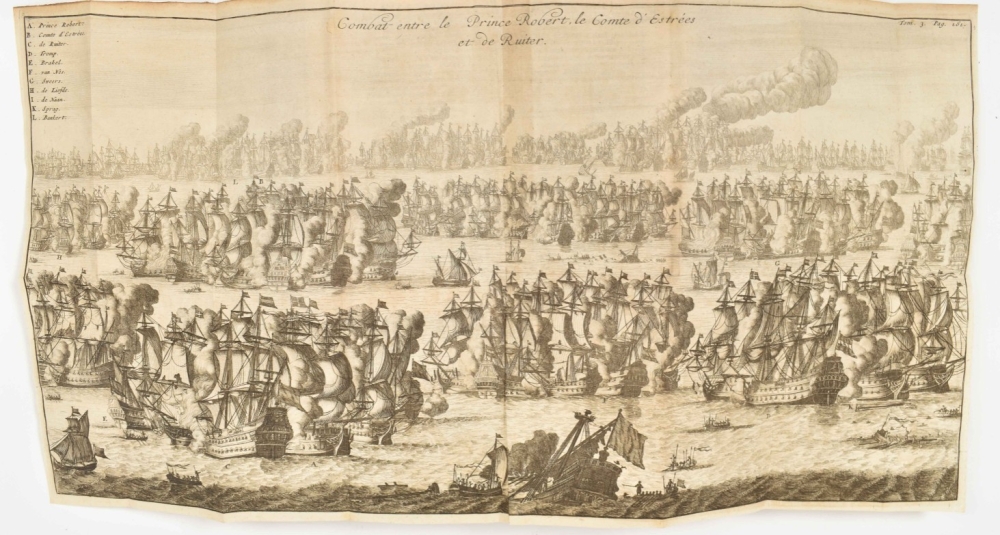 Combat entre le Prince Robert, le Comte d'Estrées
et de Ruiter.
Tom. 3. Pag.
A. Prince Robert.
B. Comte d'Estrée.
C. de Ruiter.
D. Tromp.
E. Brakel.
F. van Nes.
G. Sweers.
H. de Liefde.
I. de Haan.
K. Sprag.
L. Bankert.